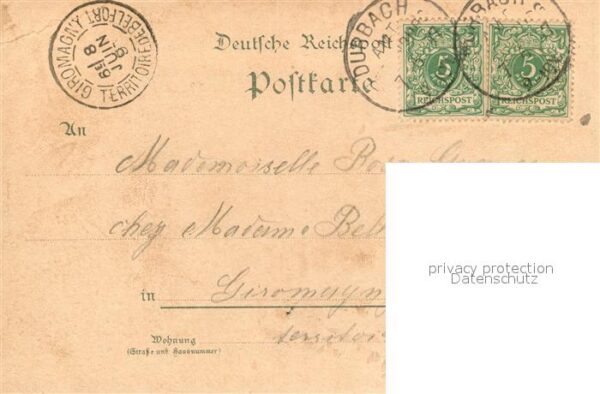 Deutsche Reichspost
Postkarte
GIROMAGNY TERRITOIRE DE BELFORT
8 JUIN 99
DURBACH
5 5
REICHSPOST REICHSPOST
An
Mademoiselle Rosa
chez Madame
in Giromagny
Wohnung
(Straße und Hausnummer)
privacy protection
Datenschutz